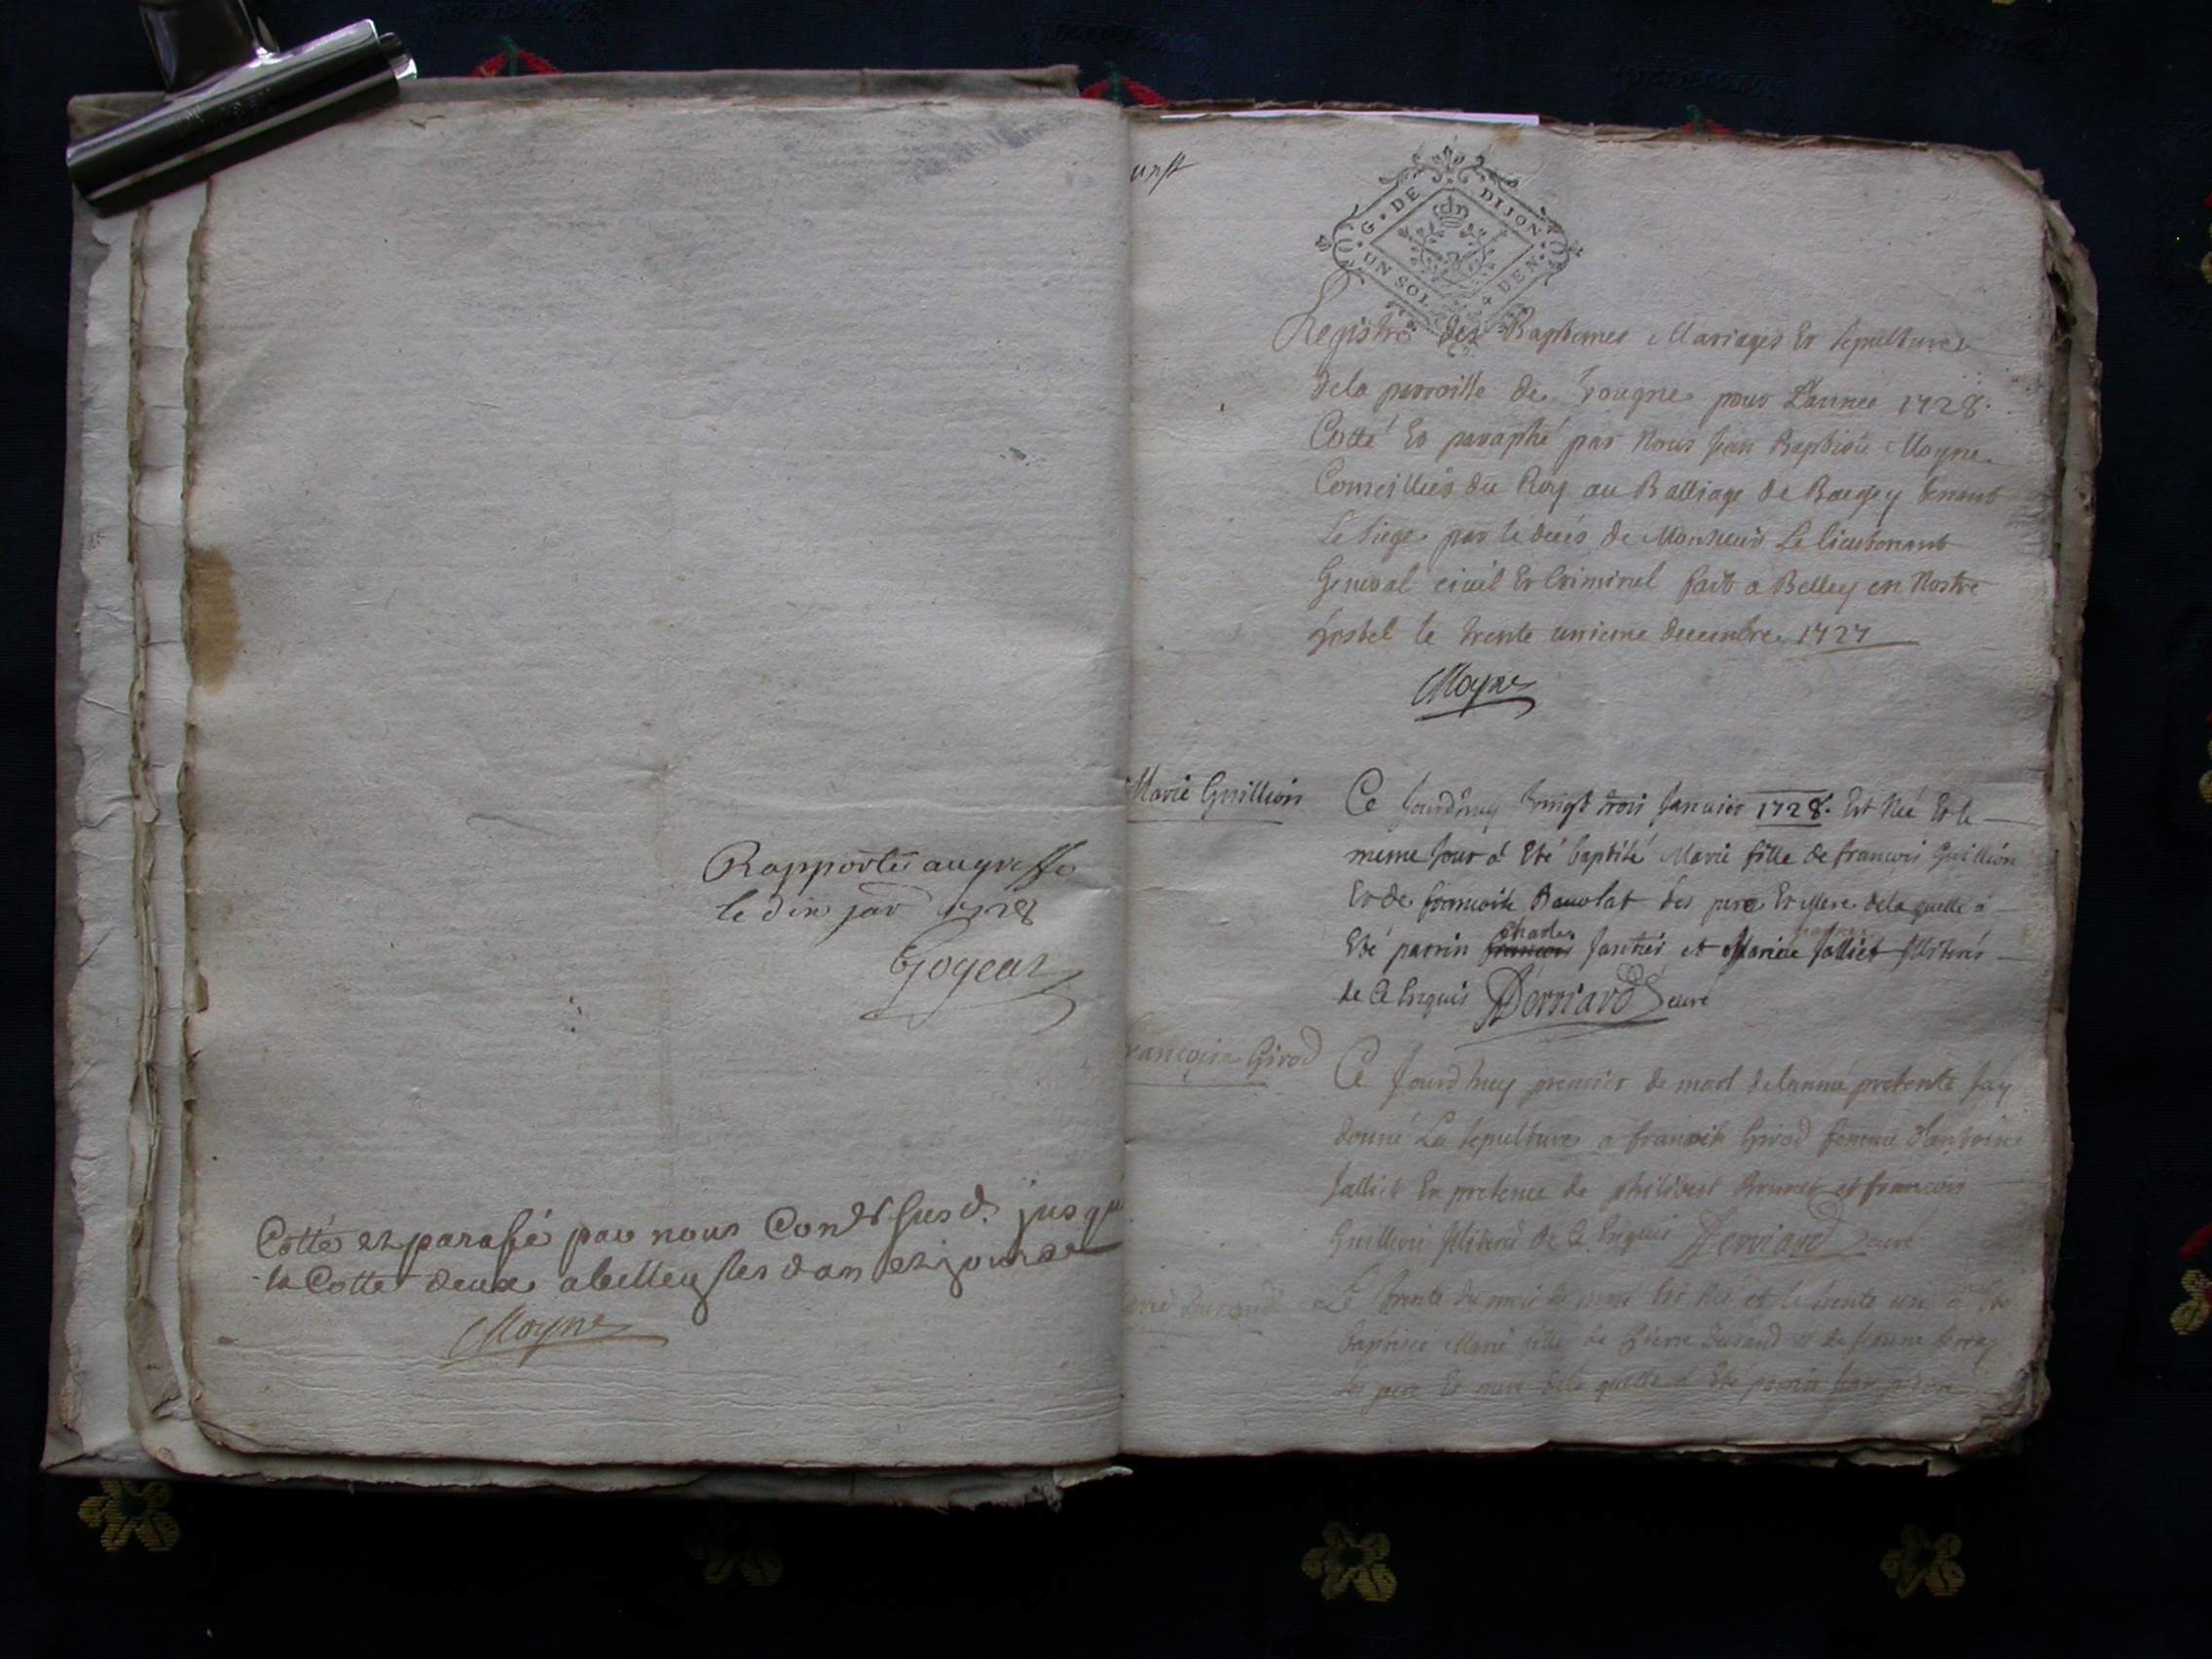 Rapportée au greffe
le dix janr 1728
Goyeat
Cotté et parafé par nous Coner susd. jusqu
la Cotte deux a belley les dan et jour de
Moyne
G. DE DIJON
UN SOL 4 DEN.
Registre des Baptemes Mariages Et sepultures
dela parroisse de pour L'année 1728.
Cotté Et paraphé par Nous Jean Baptiste Moyne
Conseiller du Roy au Balliage de Baugey tenant
Le siege par le decés de Monsieur Le lieutenant
General civil Et Criminel fait a Belley en Nostre
hostel le trente unieme decembre 1727
Moyne
Marie Guillion
Ce Jourdhuy vingt trois Janvier 1728. Est Née Et le
meme Jour a Eté baptisé Marie fille de francois Guillion
Et de francoise Bauolat ses pere Et Mere de la quelle a
Eté parrin francois charles Jantier et Marie Jalliet
de Curé
francoise Girod
Ce Jourdhuy premier de mars de lannée presente Jay
donné La sepulture a francoise Girod femme d'antoine
Jalliet En presence de philibert Brunet et francois
Guillion de curé
Durand
Le trente du mois de mars Est Née et le trente un a Eté
baptisée Marie fille de Pierre Durand et de Jeanne
ses pere Et mere dela quelle a Eté parrin